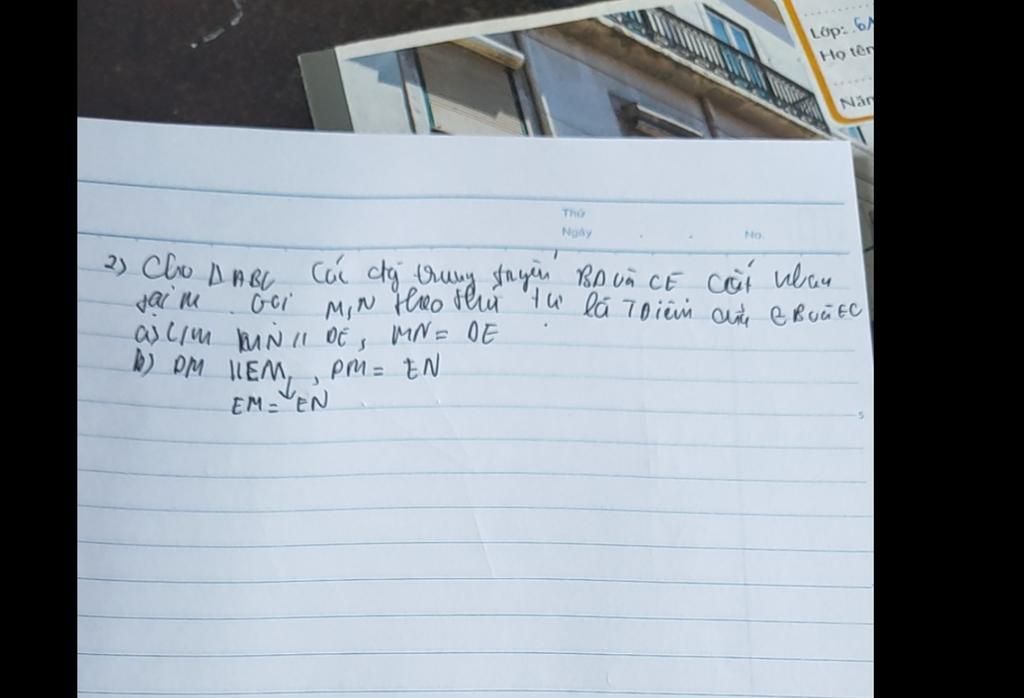 Lớp: 6A
Họ tên
Năm
Thứ
Ngày . . No.
2) Cho Δ ABC Các đg trung tuyến BD và CE cắt nhau
tại M Gọi M, N theo thứ tự là TĐiểm của CB và EC
a) C/m MN // DE, MN = DE
b) DM // EM, DM = EN
EM = EN
5